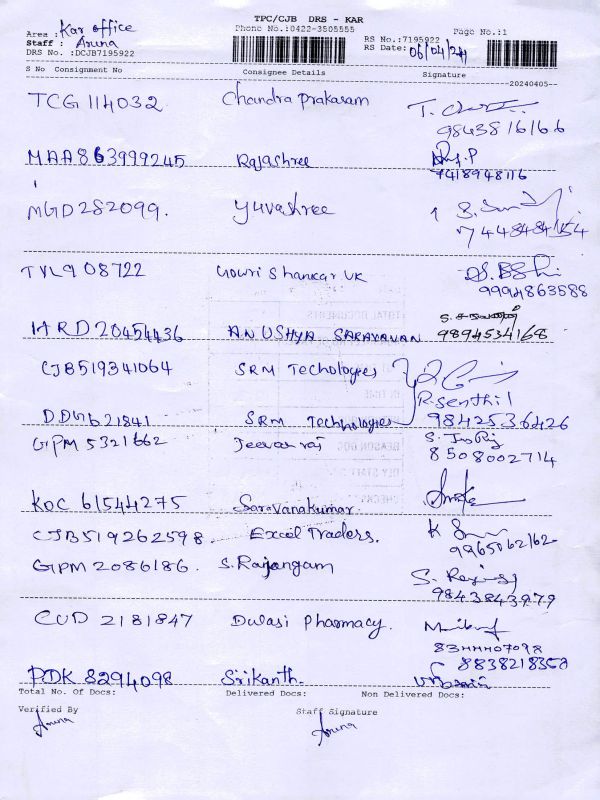 TPC/CJB DRS - KAR
Phone No.:0422-3505555
Page No.:1
Area : Kar office
Staff : Aruna
DRS No. :DCJB7195922
RS No.:7195922
RS Date: 06/04/24
S No Consignment No Consignee Details Signature
20240405--
TCG 114032 Chandra prakasam
9843816166
MAA863999245 Rajashree
7418948116
MGD282099. Yuvashree
TVL908722 Gowri Shankar VK
9994863588
ANUSHYA SARAVANAN
9894534168
CJB519341064 SRM Techologies
R.Senthil
SRM Technologies 9842536426
GPM 5321662 Jeevan raj
8508002714
KOC 61544275 Saravanakumar.
CJB519262598. Excel Traders.
9965062162
GPM 2086186. S. Rajangam
9843843979
CUD 2181847 Dwasi Pharmacy.
PDK 8294098 Srikanth.
Total No. Of Docs: Delivered Docs: Non Delivered Docs:
Verified By Staff Signature
Aruna Aruna